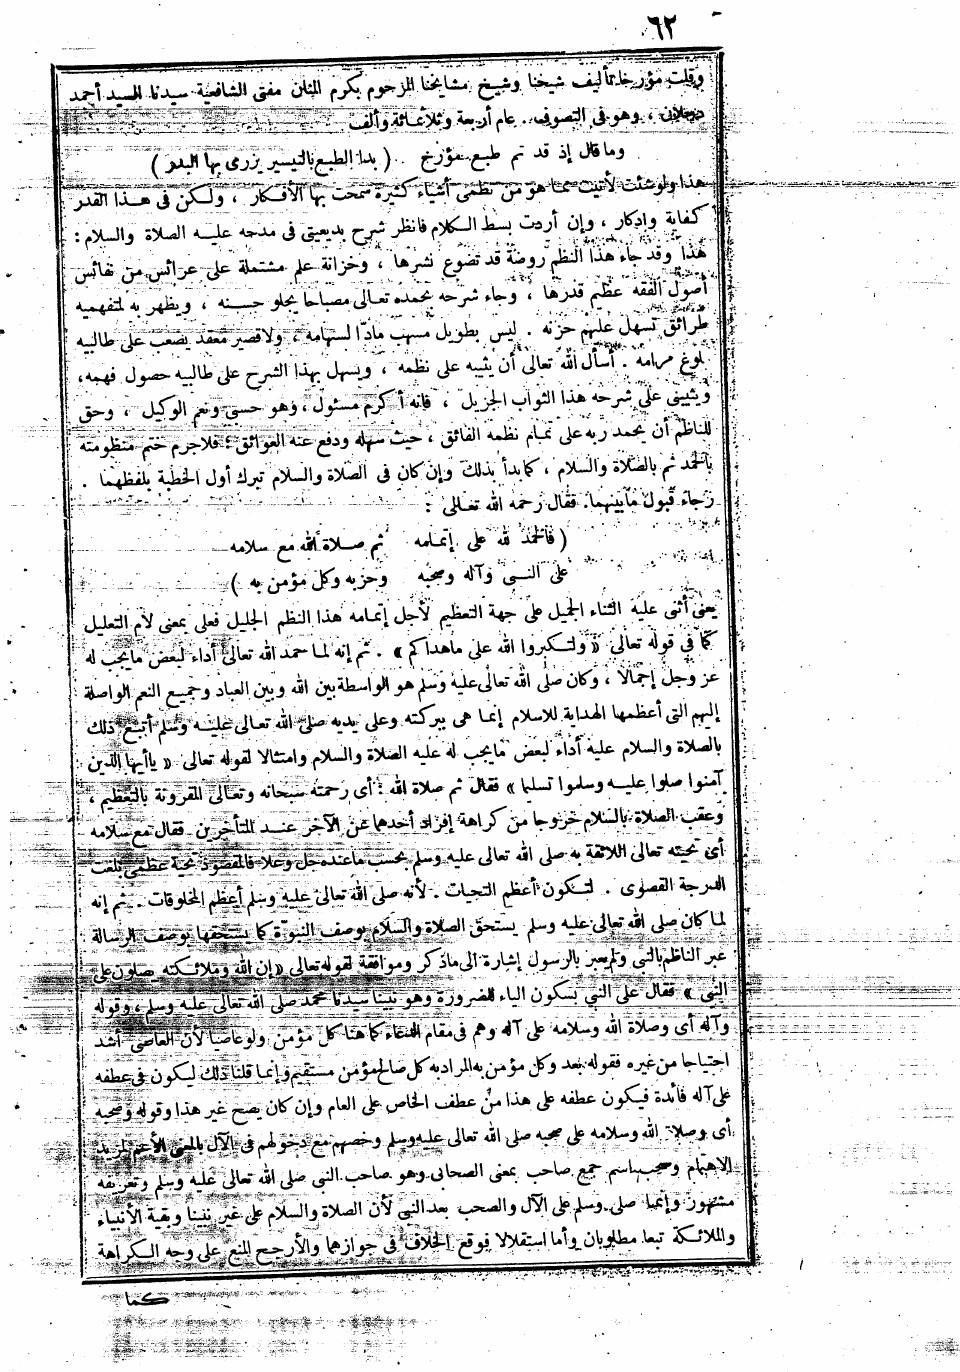 ٦٢
وقلت مؤرخا تأليف شيخنا وشيخ مشايخنا المرحوم بكرم المنان مفتى الشافعية سيدنا السيد أحمد
دحلان ، وهو فى التصوف . عام أربعة وثلاثمائة وألف
وما قال إذ قد تم طبع مؤرخ ( بدا الطبع بالتيسير يزرى بها البدر )
هذا ولو شئت لأتيت مما هو من نظمى أشياء كثيرة سمحت بها الأفكار ، ولكن فى هذا القدر
كفاية وادكار ، وإن أردت بسط الكلام فانظر شرح بديعيتى فى مدحه عليه الصلاة والسلام :
هذا وقد جاء هذا النظم روضة قد تضوع نشرها ، وخزانة علم مشتملة على عرائس من نفائس
أصول الفقه عظيم قدرها ، وجاء شرحه بحمده تعالى مصباحا يجلو حسنه ، ويظهر به لمتفهميه
طرائق تسهل عليهم حزنه . ليس بطويل مسهب مادّا لسهامه ، ولا قصير معقد يصعب على طالبيه
بلوغ مرامه . أسأل الله تعالى أن يثيبه على نظمه ، ويسهل بهذا الشرح على طالبيه حصول فهمه،
ويثيبنى على شرحه هذا الثواب الجزيل ، فانه أكرم مسئول ، وهو حسبى ونعم الوكيل ، وحق
للناظم أن يحمد ربه على تمام نظمه الفائق ، حيث سهله ودفع عنه العوائق : فلاجرم ختم منظومته
بالحمد ثم بالصلاة والسلام ، كما بدأ بذلك وإن كان فى الصلاة والسلام تبرك أول الخطبة بلفظهما .
رجاء قبول ما بينهما. فقال رحمه الله تعالى :
( فالحمد لله على إتمامه ثم صلاة الله مع سلامه
على النبى وآله وصحبه وحزبه وكل مؤمن به )
يعنى أثنى عليه الثناء الجميل على جهة التعظيم لأجل إتمامه هذا النظم الجليل فعلى بمعنى لام التعليل
كما فى قوله تعالى «ولتكبروا الله على ماهداكم» . ثم إنه لما حمد الله تعالى أداء لبعض ما يجب له
عز وجل إجمالا ، وكان صلى الله تعالى عليه وسلم هو الواسطة بين الله وبين العباد وجميع النعم الواصلة
إليهم التى أعظمها الهداية للاسلام إنما هى ببركته وعلى يديه صلى الله تعالى عليه وسلم أتبع ذلك
بالصلاة والسلام عليه أداء لبعض مايجب له عليه الصلاة والسلام وامتثالا لقوله تعالى «ياأيها الذين
آمنوا صلوا عليه وسلموا تسليما» فقال ثم صلاة الله : أى رحمته سبحانه وتعالى المقرونة بالتعظيم ،
وعقب الصلاة بالسلام خروجا من كراهة إفراد أحدهما عن الآخر عند المتأخرين فقال مع سلامه
أى تحيته تعالى اللائقة به صلى الله تعالى عليه وسلم بحسب ماعنده جل وعلا فالمقصود تحية عظمى بلغت
الدرجة القصوى . لتكون أعظم التحيات . لأنه صلى الله تعالى عليه وسلم أعظم المخلوقات . ثم إنه
لما كان صلى الله تعالى عليه وسلم يستحق الصلاة والسلام بوصف النبوّة كما يستحقها بوصف الرسالة
عبر الناظم بالنبى ولم يعبر بالرسول إشارة الى ماذكر وموافقة لقوله تعالى «إن الله وملائكته يصلون على
النبى» فقال على النبى بسكون الياء للضرورة وهو نبينا سيدنا محمد صلى الله تعالى عليه وسلم ، وقوله
وآله أى وصلاة الله وسلامه على آله وهم فى مقام الدعاء كما هنا كل مؤمن ولو عاصيا لأن العاصى أشد
احتياجا من غيره فقوله بعد وكل مؤمن به المراد به كل صالح مؤمن مستقيم وإنما قلنا ذلك ليكون فى عطفه
على آله فائدة فيكون عطفه على هذا من عطف الخاص على العام وإن كان يصح غير هذا وقوله وصحبه
أى وصلاة الله وسلامه على صحبه صلى الله تعالى عليه وسلم وخصهم مع دخولهم فى الآل بالمعنى الأعم لمزيد
الاهتمام وصحب اسم جمع صاحب بمعنى الصحابى وهو صاحب النبى صلى الله تعالى عليه وسلم وتعريفه
مشهور وإنما صلى وسلم على الآل والصحب بعد النبى لأن الصلاة والسلام على غير نبينا وبقية الأنبياء
والملائكة تبعا مطلوبان وأما استقلالا فوقع الخلاف فى جوازهما والأرجح المنع على وجه الكراهة
كما